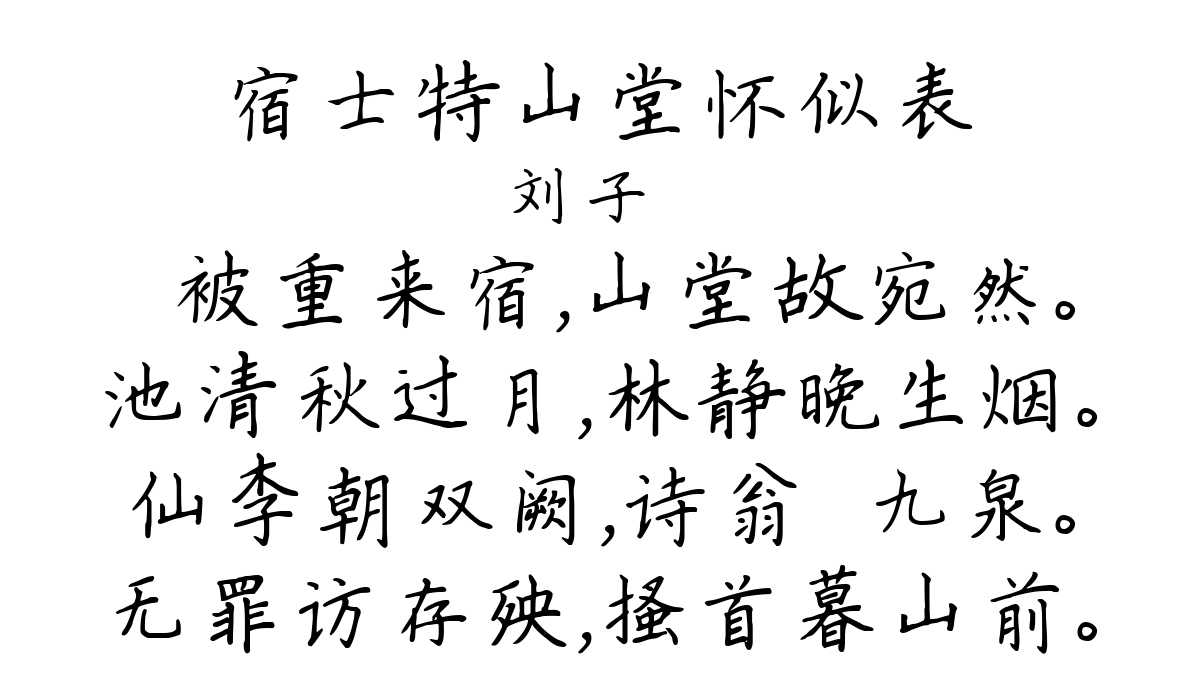 宿士特山堂怀似表
刘子
被重来宿,山堂故宛然。
池清秋过月,林静晚生烟。
仙李朝双阙,诗翁 九泉。
无罪访存殃,搔首暮山前。